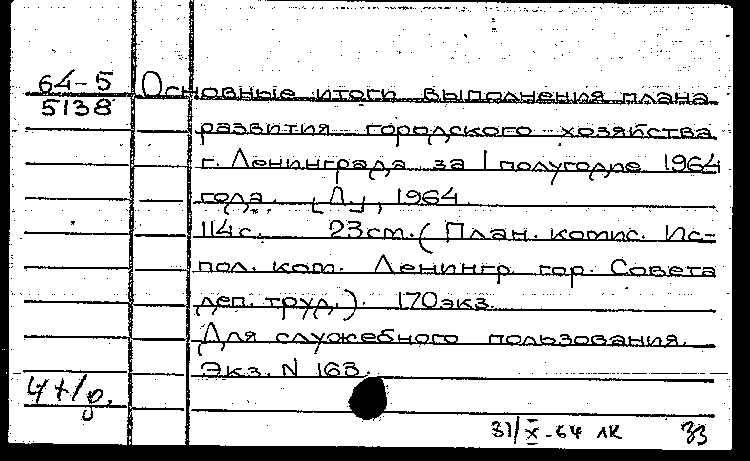 64-5
5138
Основные итоги выполнения плана
развития городского хозяйства
г. Ленинграда за I полугодие 1964
года. [Л.], 1964.
114 с. 23 см. (План. комис. Ис-
пол. ком. Ленингр. гор. Совета
деп. труд.). 170 экз.
Для служебного пользования.
Экз. N 163.
31/X-64 ЛК 33